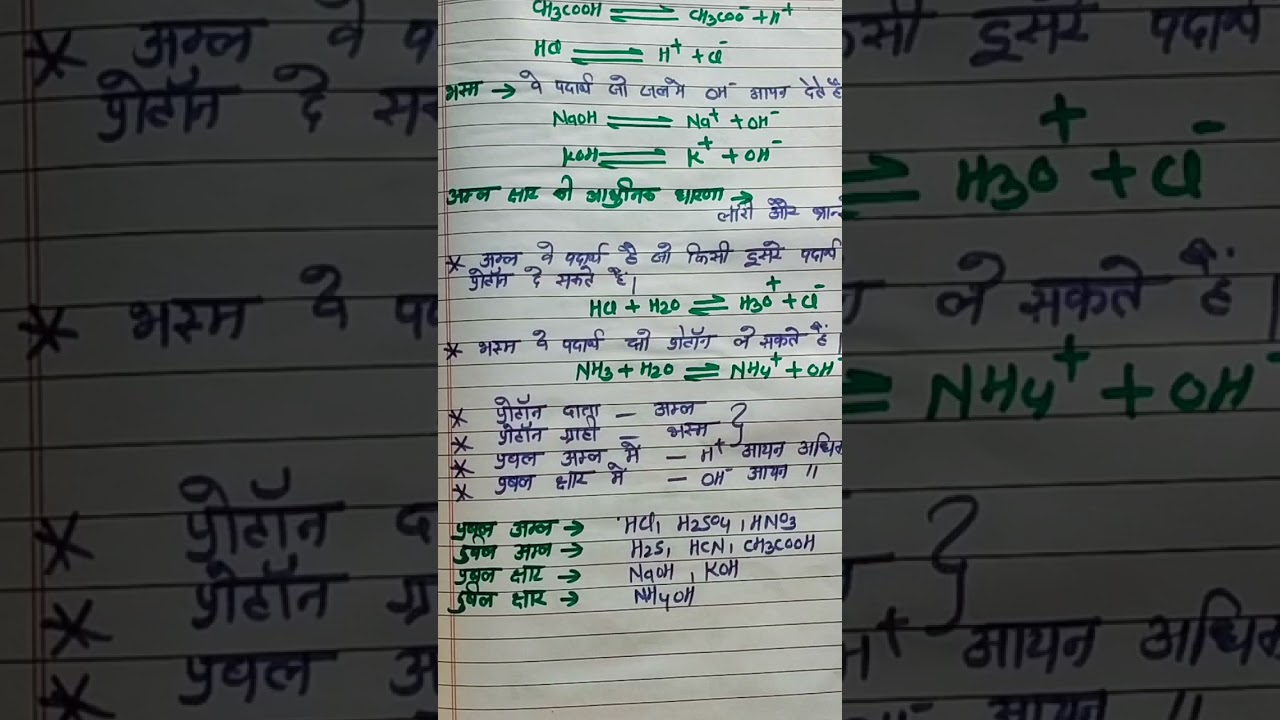 CH3COOH ⇌ CH3COO⁻ + H⁺
HCl ⇌ H⁺ + Cl⁻
भस्म → वे पदार्थ जो जलमे OH⁻ आयन देते है
NaOH ⇌ Na⁺ + OH⁻
KOH ⇌ K⁺ + OH⁻
अम्ल क्षार की आधुनिक धारणा →
लोरी और
* अम्ल वे पदार्थ है जो किसी दूसरे पदार्थ
प्रोटॉन दे सकते है।
HCl + H2O ⇌ H3O⁺ + Cl⁻
* भस्म वे पदार्थ जो प्रोटॉन ले सकते हैं।
NH3 + H2O ⇌ NH4⁺ + OH⁻
* प्रोटॉन दाता – अम्ल }
* प्रोटॉन ग्राही – भस्म
* प्रबल अम्ल में – H⁺ आयन
* प्रबल क्षार में – OH⁻ आयन "
प्रबल अम्ल → HCl, H2SO4, HNO3
दुर्बल अम्ल → H2S, HCN, CH3COOH
प्रबल क्षार → NaOH, KOH
दुर्बल क्षार → NH4OH